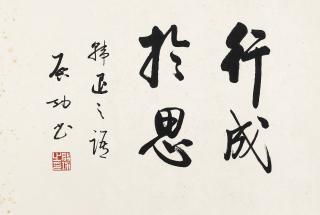 行成
於思
韩退之语
启功书